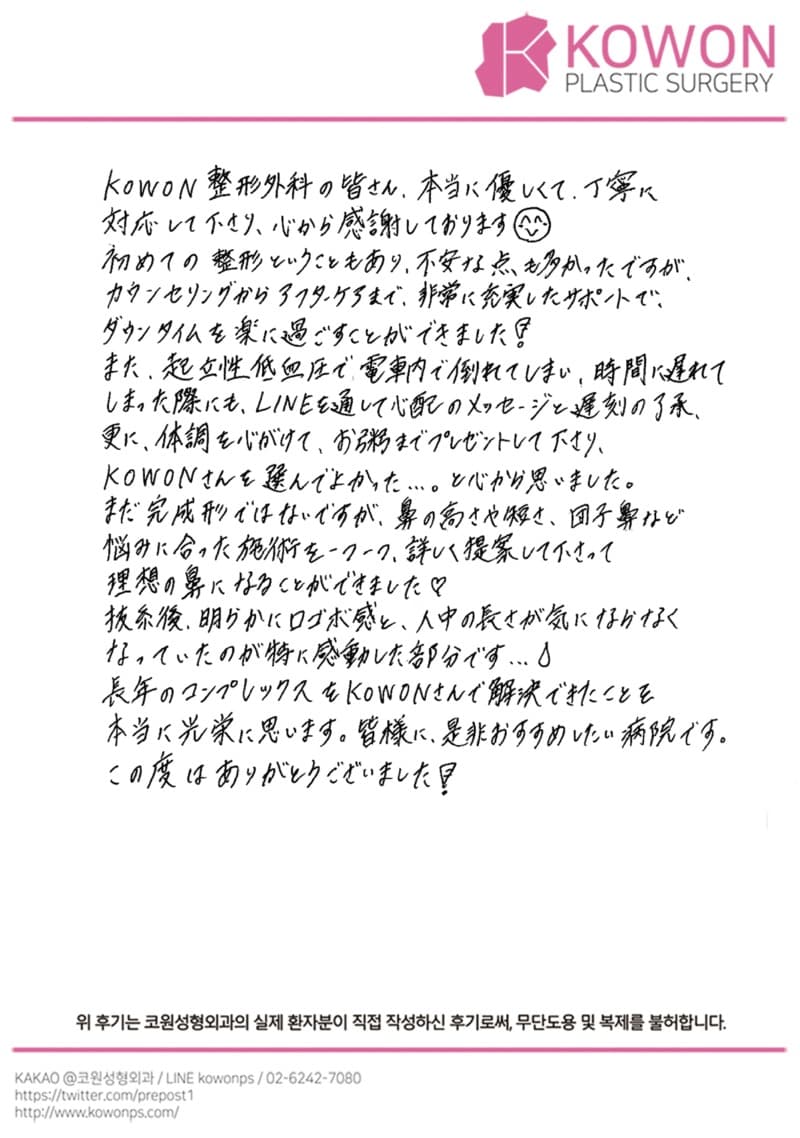 KOWON
PLASTIC SURGERY
KOWON 整形外科の皆さん、本当に優しくて、丁寧に
対応して下さり、心から感謝しております
初めての整形ということもあり、不安な点も多かったですが、
カウンセリングからアフターケアまで、非常に充実したサポートで、
ダウンタイムを楽に過ごすことができました!
また、起立性低血圧で、電車内で倒れてしまい、時間に遅れて
しまった際にも、LINEを通して心配のメッセージと遅刻の了承、
更に、体調を心がけて、お粥までプレゼントして下さり、
KOWONさんを選んでよかった...。と心から思いました。
まだ完成形ではないですが、鼻の高さや短さ、団子鼻など
悩みに合った施術を一つ一つ、詳しく提案して下さって
理想の鼻になることができました♡
抜糸後、明らかにロゴボ感と、人中の長さが気にならなく
なっていたのが特に感動した部分です...
長年のコンプレックスをKOWONさんで解決できたことを
本当に光栄に思います。皆様に、是非おすすめしたい病院です。
この度はありがとうございました!
위 후기는 코원성형외과의 실제 환자분이 직접 작성하신 후기로써, 무단도용 및 복제를 불허합니다.
KAKAO @코원성형외과 / LINE kowonps / 02-6242-7080
https://twitter.com/prepost1
http://www.kowonps.com/